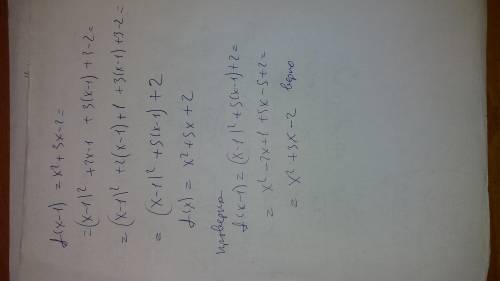 f(x-1) = x²+3x-2=
=(x-1)² +2x-1 +3(x-1)+3-2=
=(x-1)² +2(x-1)+1 +3(x-1)+3-2=
= (x-1)²+5(x-1)+2
f(x) = x²+5x+2
проверка
f(x-1) = (x-1)²+5(x-1)+2=
= x²-2x+1+5x-5+2=
= x²+3x-2 верно